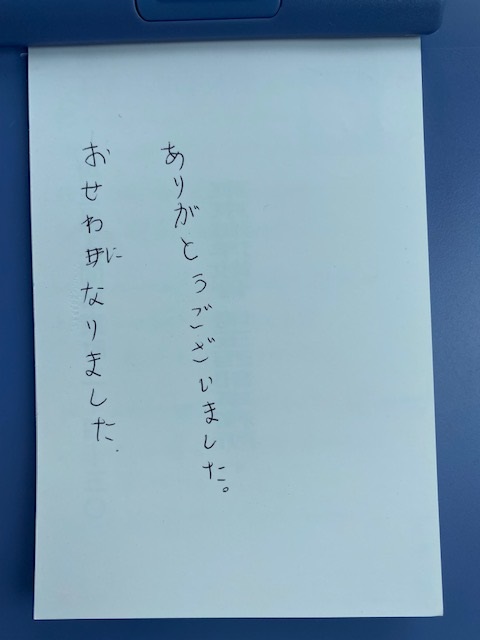 ありがとうございました。
おせわになりました.